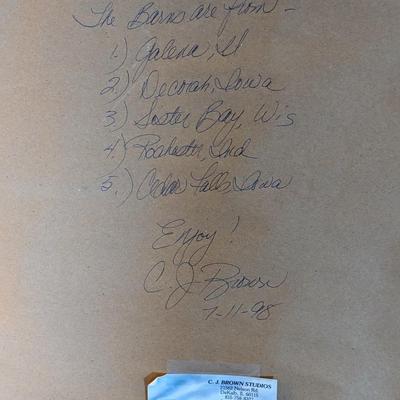 The Barns are from -
1.) Galena, Il
2.) Decorah, Iowa
3.) Sister Bay, Wis
4.) Rochester, Ind
5.) Cedar Falls, Iowa
Enjoy!
C. J. Brown
7-11-98
C. J. BROWN STUDIOS
Nelson Rd.
DeKalb, IL 60115